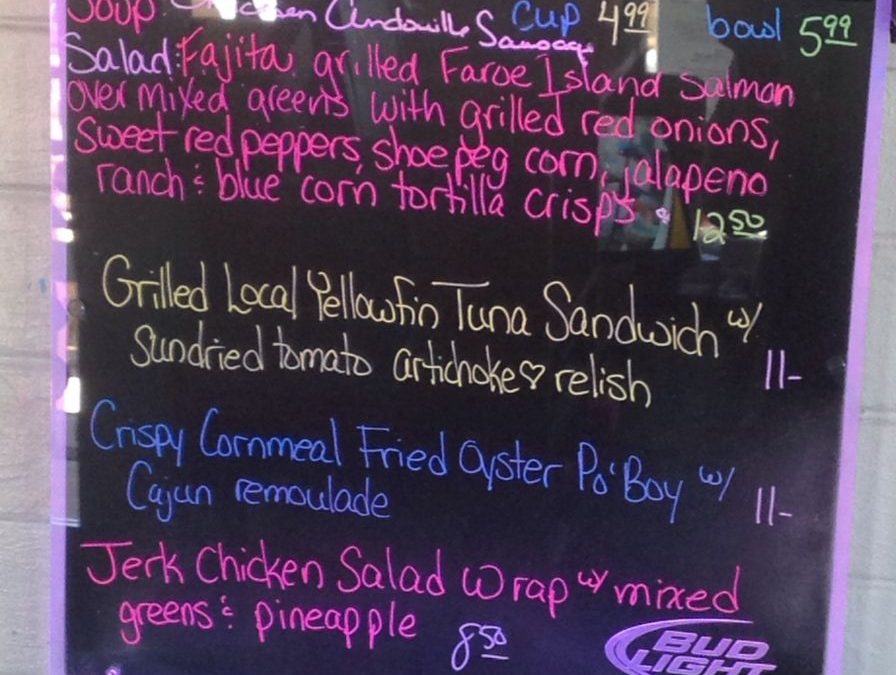 Soup Chicken Andouille Sausage Cup 4 99 bowl 5 99
Salad: Fajita grilled Faroe Island Salmon
over mixed greens with grilled red onions,
sweet red peppers, shoepeg corn, jalapeno
ranch & blue corn tortilla crisps 12 50
Grilled Local Yellowfin Tuna Sandwich w/
Sundried tomato artichoke♡ relish 11-
Crispy Cornmeal Fried Oyster Po'Boy w/
Cajun remoulade 11-
Jerk Chicken Salad Wrap w/ mixed
greens & pineapple 8 50
BUD
LIGHT